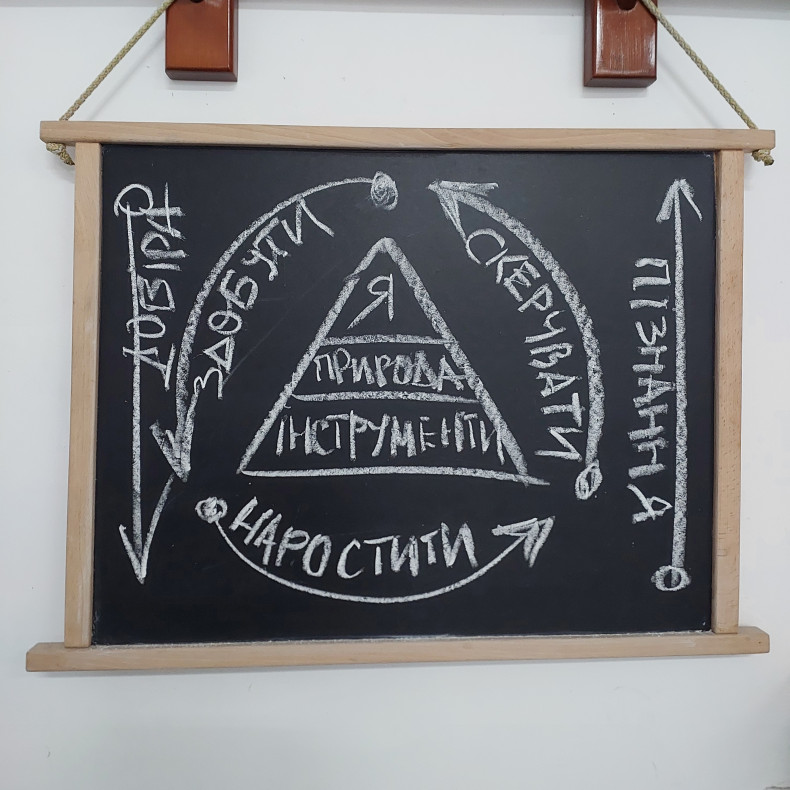 ДОВІРА
ЗДОБУТИ
Я
ПРИРОДА
ІНСТРУМЕНТИ
СКЕРУВАТИ
ПІЗНАННЯ
НАРОСТИТИ